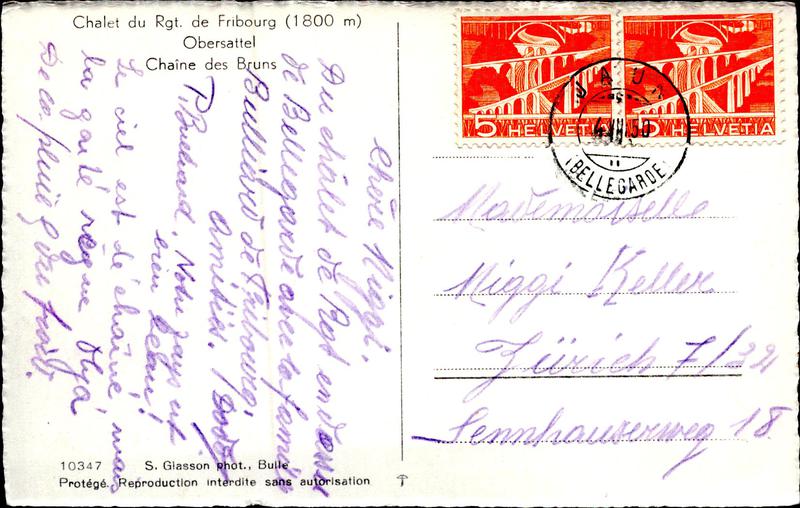 Chalet du Rgt. de Fribourg (1800 m)
Obersattel
Chaîne des Bruns
5 HELVETIA
5 HELVETIA
JAUN
4.VII.50
(BELLEGARDE)
Chère Miggi,
Du châlet de Rgt en dessus
de Bellegarde avec la famille
Bulliard de Fribourg,
Amitiés.
P. Bertrand. Notre pays est
bien beau!
Le ciel est déchaîné mais
la gaité règne
pluie
Mademoiselle
Miggi Keller
Zürich 7/32
Sennhauserweg 18
10347 S. Glasson phot., Bulle
Protégé. Reproduction interdite sans autorisation